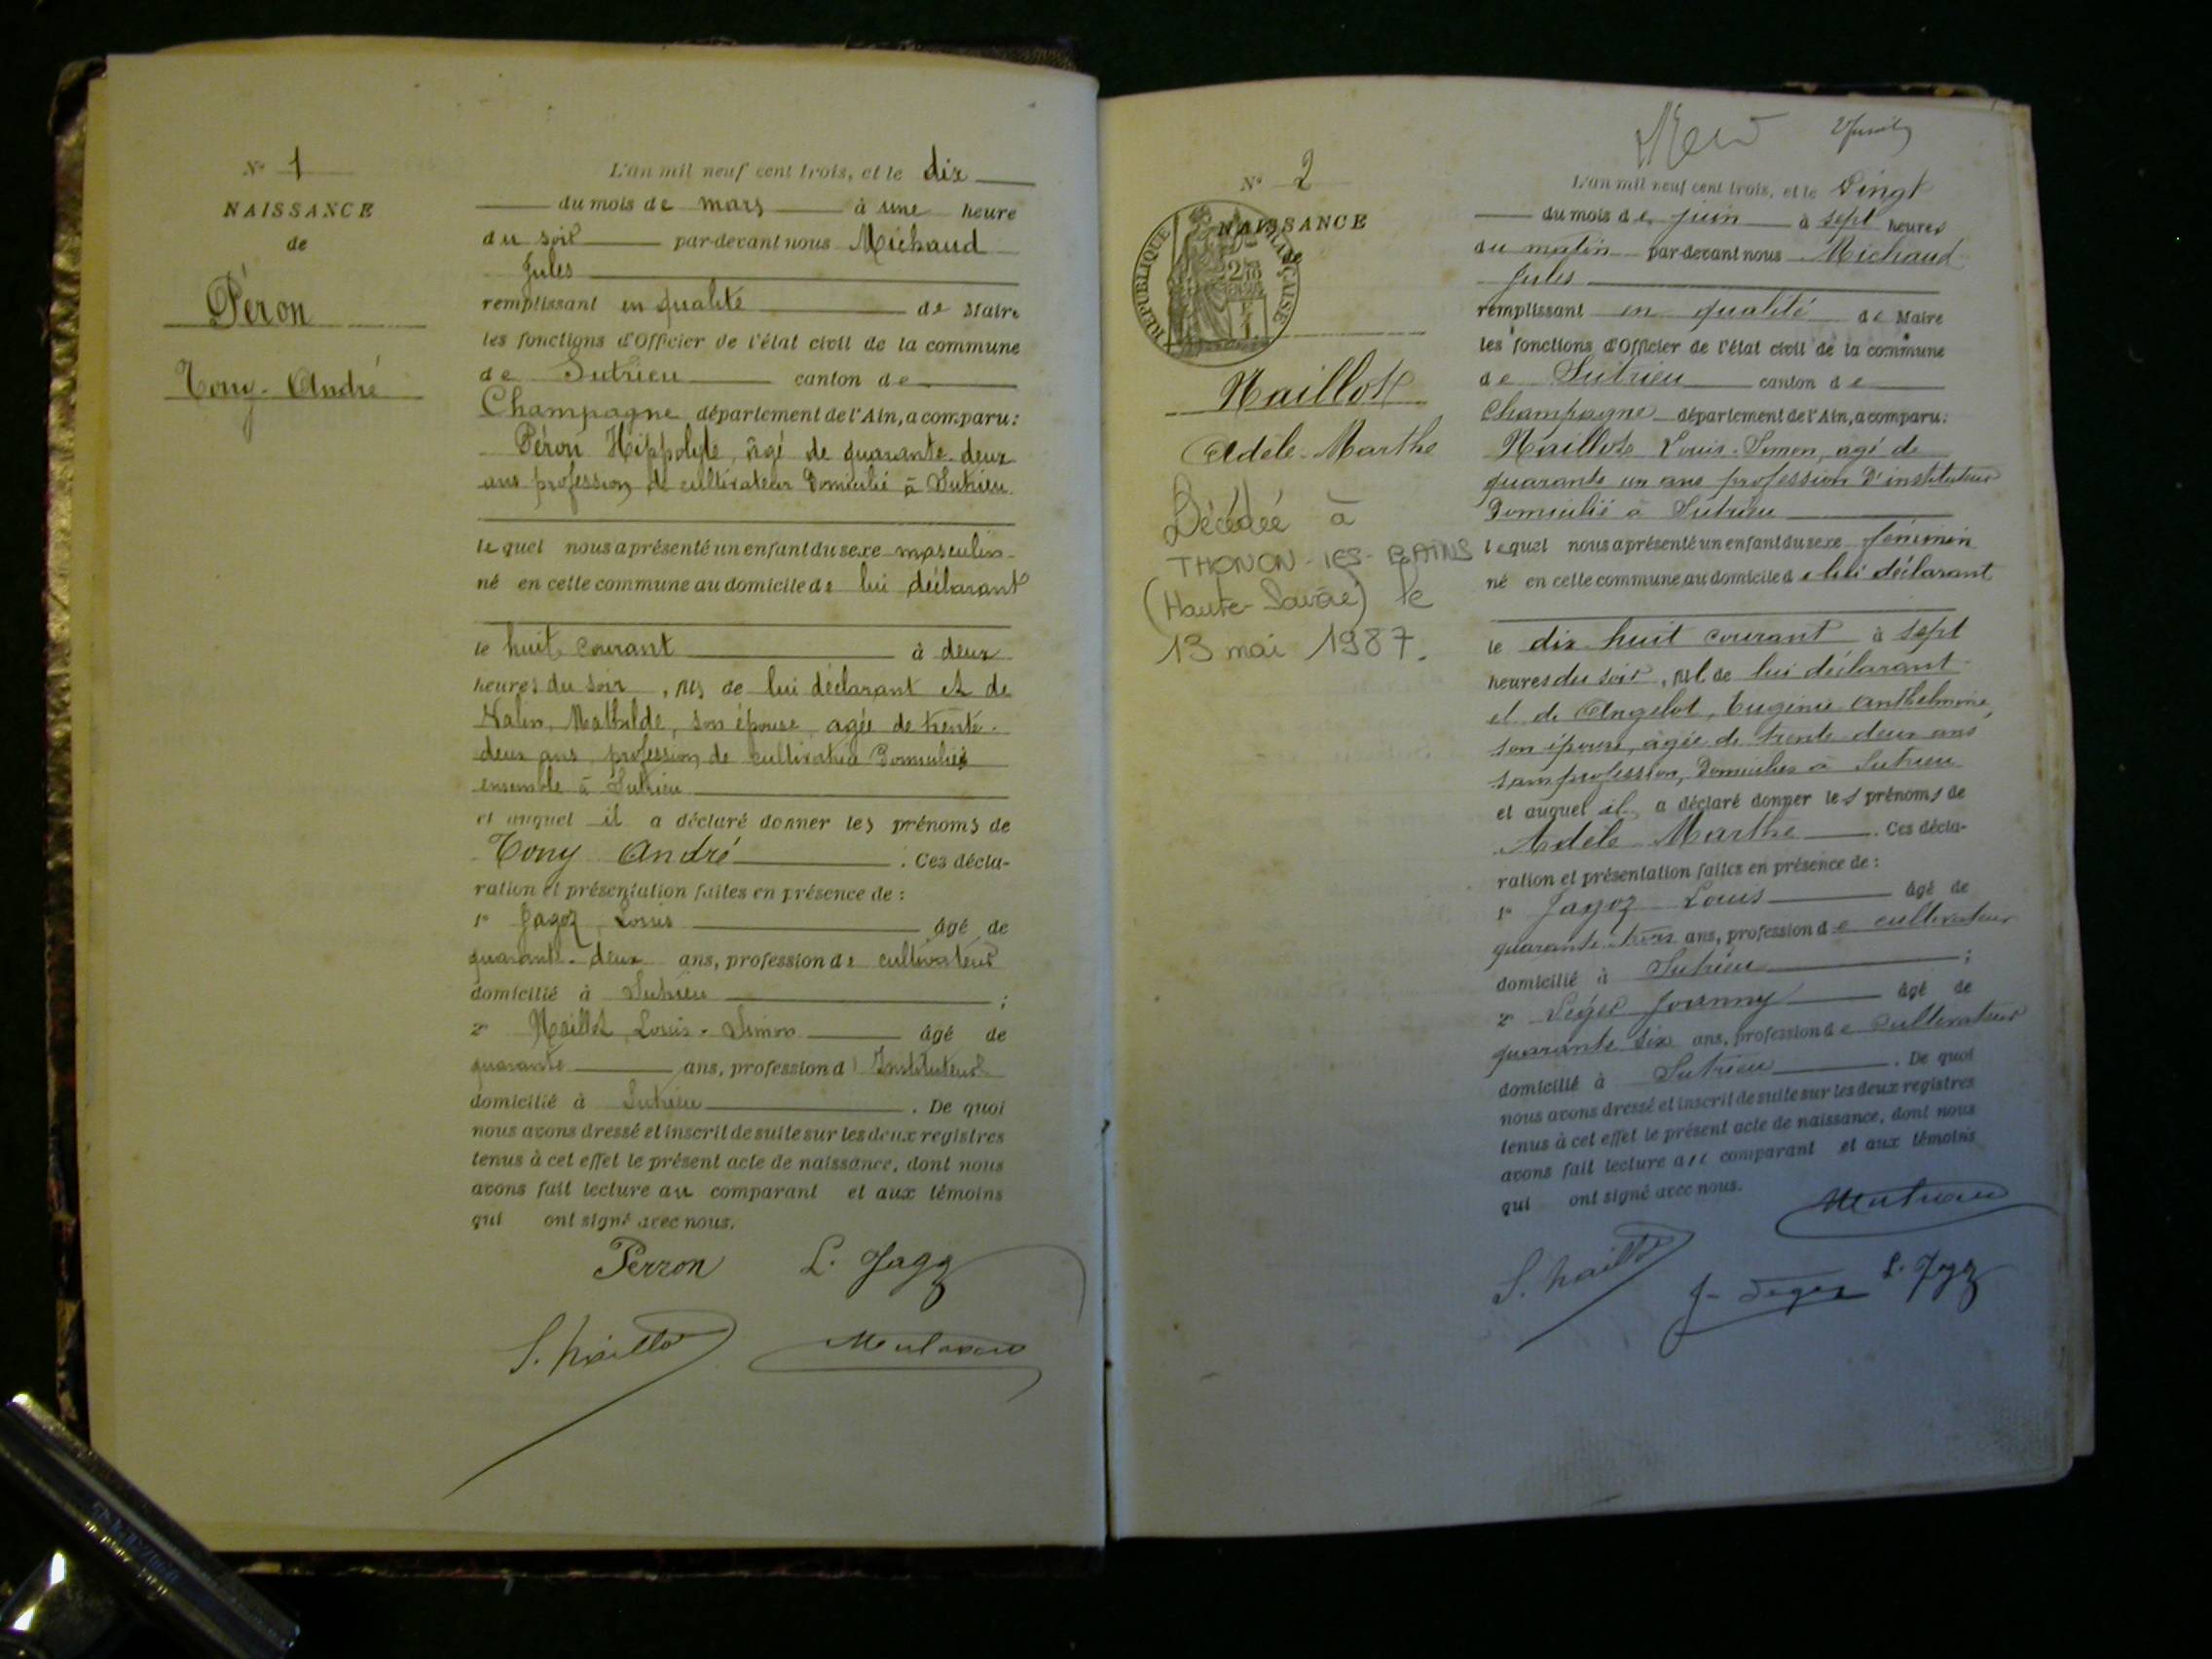 N° 1
NAISSANCE
de
Péron
Tony-André
L'an mil neuf cent trois, et le dix
du mois de mars à une heure
du soir par-devant nous Michaud
Jules
remplissant en qualité de Maire
les fonctions d'Officier de l'état civil de la commune
de Sutrieu canton de
Champagne département de l'Ain, a comparu:
Péron Hippolyte, âgé de quarante-deux
ans profession de cultivateur Domicilié à Sutrieu
lequel nous a présenté un enfant du sexe masculin
né en cette commune au domicile de lui déclarant
le huit courant à deux
heures du soir, fils de lui déclarant et de
Mathilde, son épouse, agée de trente-
deux ans, profession de cultivatrice Domiciliés
ensemble à Sutrieu
et auquel il a déclaré donner les prénoms de
Tony André. Ces décla-
ration et présentation faites en présence de:
1° Jagoz Louis âgé de
quarante-deux ans, profession de cultivateur
domicilié à Sutrieu;
2° Naillot, Louis-Simon âgé de
quarante ans, profession d'Instituteur
domicilié à Sutrieu. De quoi
nous avons dressé et inscrit de suite sur les deux registres
tenus à cet effet le présent acte de naissance, dont nous
avons fait lecture au comparant et aux témoins
qui ont signé avec nous.
Perron L. Jagoz
S. Naillot
N° 2
NAISSANCE
de
REPUBLIQUE FRANÇAISE
Naillot
Adèle-Marthe
Décédée à
THONON-LES-BAINS
(Haute-Savoie) le
13 mai 1987.
L'an mil neuf cent trois, et le Vingt
du mois de juin à sept heures
du matin par-devant nous Michaud
Jules
remplissant en qualité de Maire
les fonctions d'Officier de l'état civil de la commune
de Sutrieu canton de
Champagne département de l'Ain, a comparu:
Naillot Louis-Simon, agé de
quarante un ans profession d'instituteur
Domicilié à Sutrieu
lequel nous a présenté un enfant du sexe féminin
né en cette commune au domicile de lui déclarant
le dix huit courant à sept
heures du soir, fil de lui déclarant
et de Angelot, Eugénie Anthelmine,
son épouse, agée de trente-deux ans
sans profession, Domiciliés à Sutrieu
et auquel il a déclaré donner les prénoms de
Adèle Marthe. Ces décla-
ration et présentation faites en présence de:
1° Jagoz Louis âgé de
quarante-trois ans, profession de cultivateur
domicilié à Sutrieu;
2° Séger Joanny âgé de
quarante six ans, profession de cultivateur
domicilié à Sutrieu. De quoi
nous avons dressé et inscrit de suite sur les deux registres
tenus à cet effet le présent acte de naissance, dont nous
avons fait lecture au comparant et aux témoins
qui ont signé avec nous.
S. Naillot
J. Seger L. Jagoz